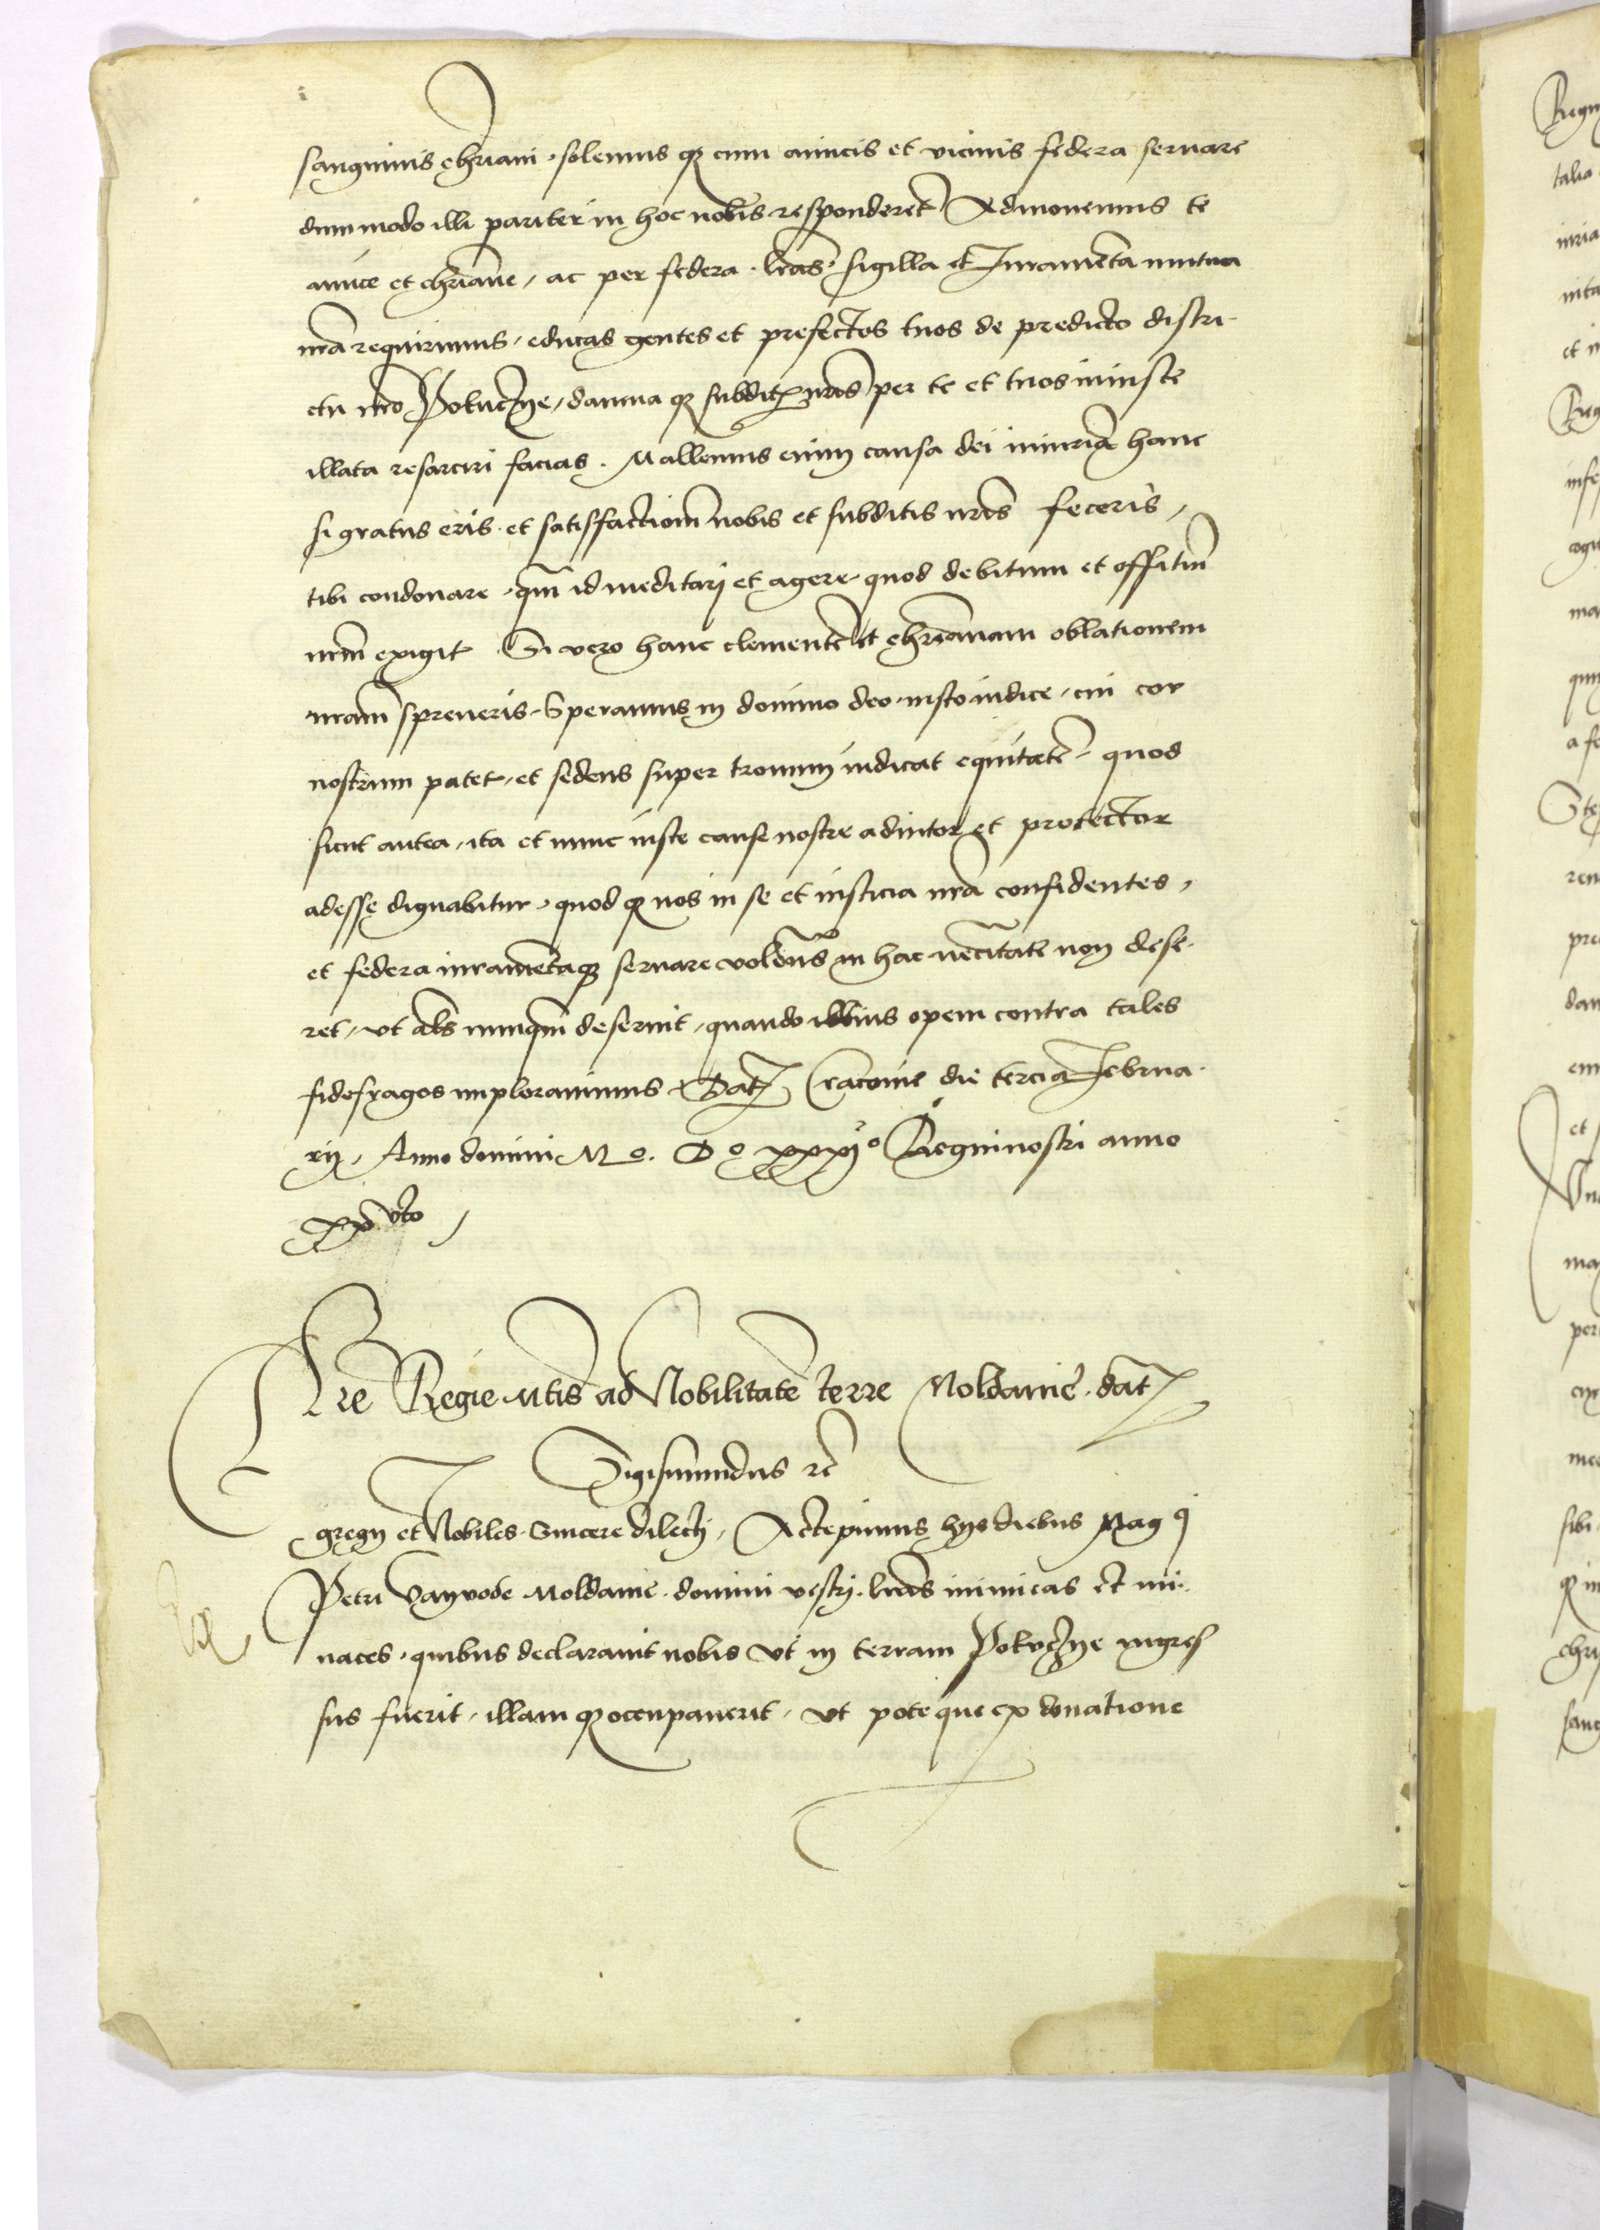 sanguinis chriani. solemus qz cum amicis et vicinis federa seruare
dummodo illi pariter in hoc nobis responderet Admonemus te
amice et chriane, ac per federa. lras. sigilla et Iuramenta mutua
nra requirimus, educas gentes et prefectos tuos de predicto distri-
ctu nro Pokuczye, damna qz subdit nris per te et tuos iniuste
illata resarciri facias. Mallemus enim causa dei iniuria hanc
si gratus eris. et satisfaction nobis et subditis nris feceris,
tibi condonare. qm id meditari et agere quod debitum et offitiu
nrm exigit. Si vero hanc clemente et chrianam oblationem
nram spreueris. Speramus in domino deo. iusto iudice, cui cor
nostrum patet, et sedens super tronum iudicat equitate. quod
sicut antea, ita et nunc iuste cause nostre adiutor et protector
adesse dignabitur. quod qz nos in se et iusticia nra confidentes,
et federa iuramentaqz seruare volentes in hac necitate non dese-
ret, vt als nunqm deseruit, quando illius opem contra tales
fidefragos implorauimus. Dat Cracouie die tercia Februa-
rij, Anno domini Mo. Do xxxjo Regni nostri anno
xxvto
Lre Regie Mtis ad Nobilitate terre Moldauie. dat
Sigismundus re
gregij et Nobiles. Sincere dilecti, Accepimus hys diebus Mag ci
Petri Vayvode Moldauie. domini vestri. lras inimicas et mi-
naces. quibus declarauit nobis vt in terram Pokuczye ingres
sus fuerit, illam qz occupauerit, vt pote que ex donatione
Regni
talia
iuria